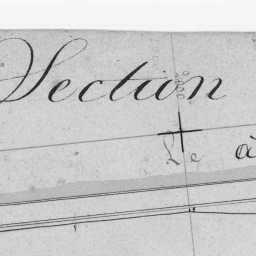 Section
Le à